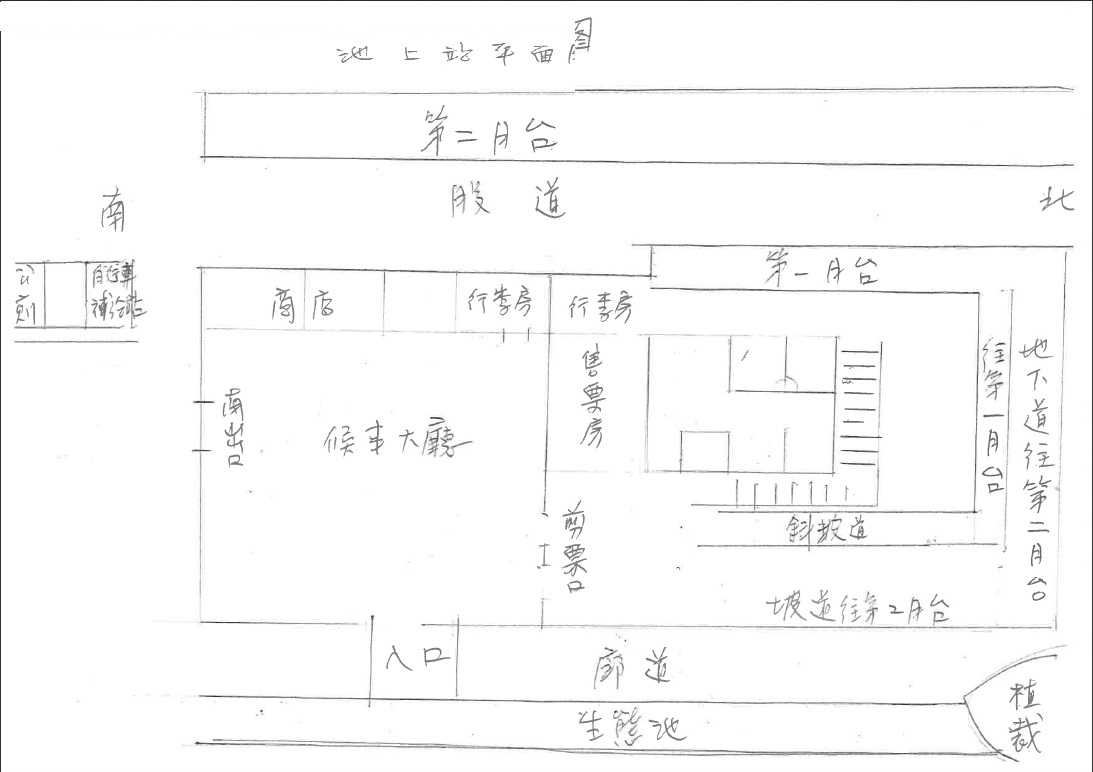 池上站平面图
第二月台
南
股道
北
自行車
補給站
商店
行李房
行李房
第一月台
售票房
南出口
候車大廳
往第一月台
地下道往第二月台
剪票口
斜坡道
坡道往第2月台
入口
廊道
生態池
植裁